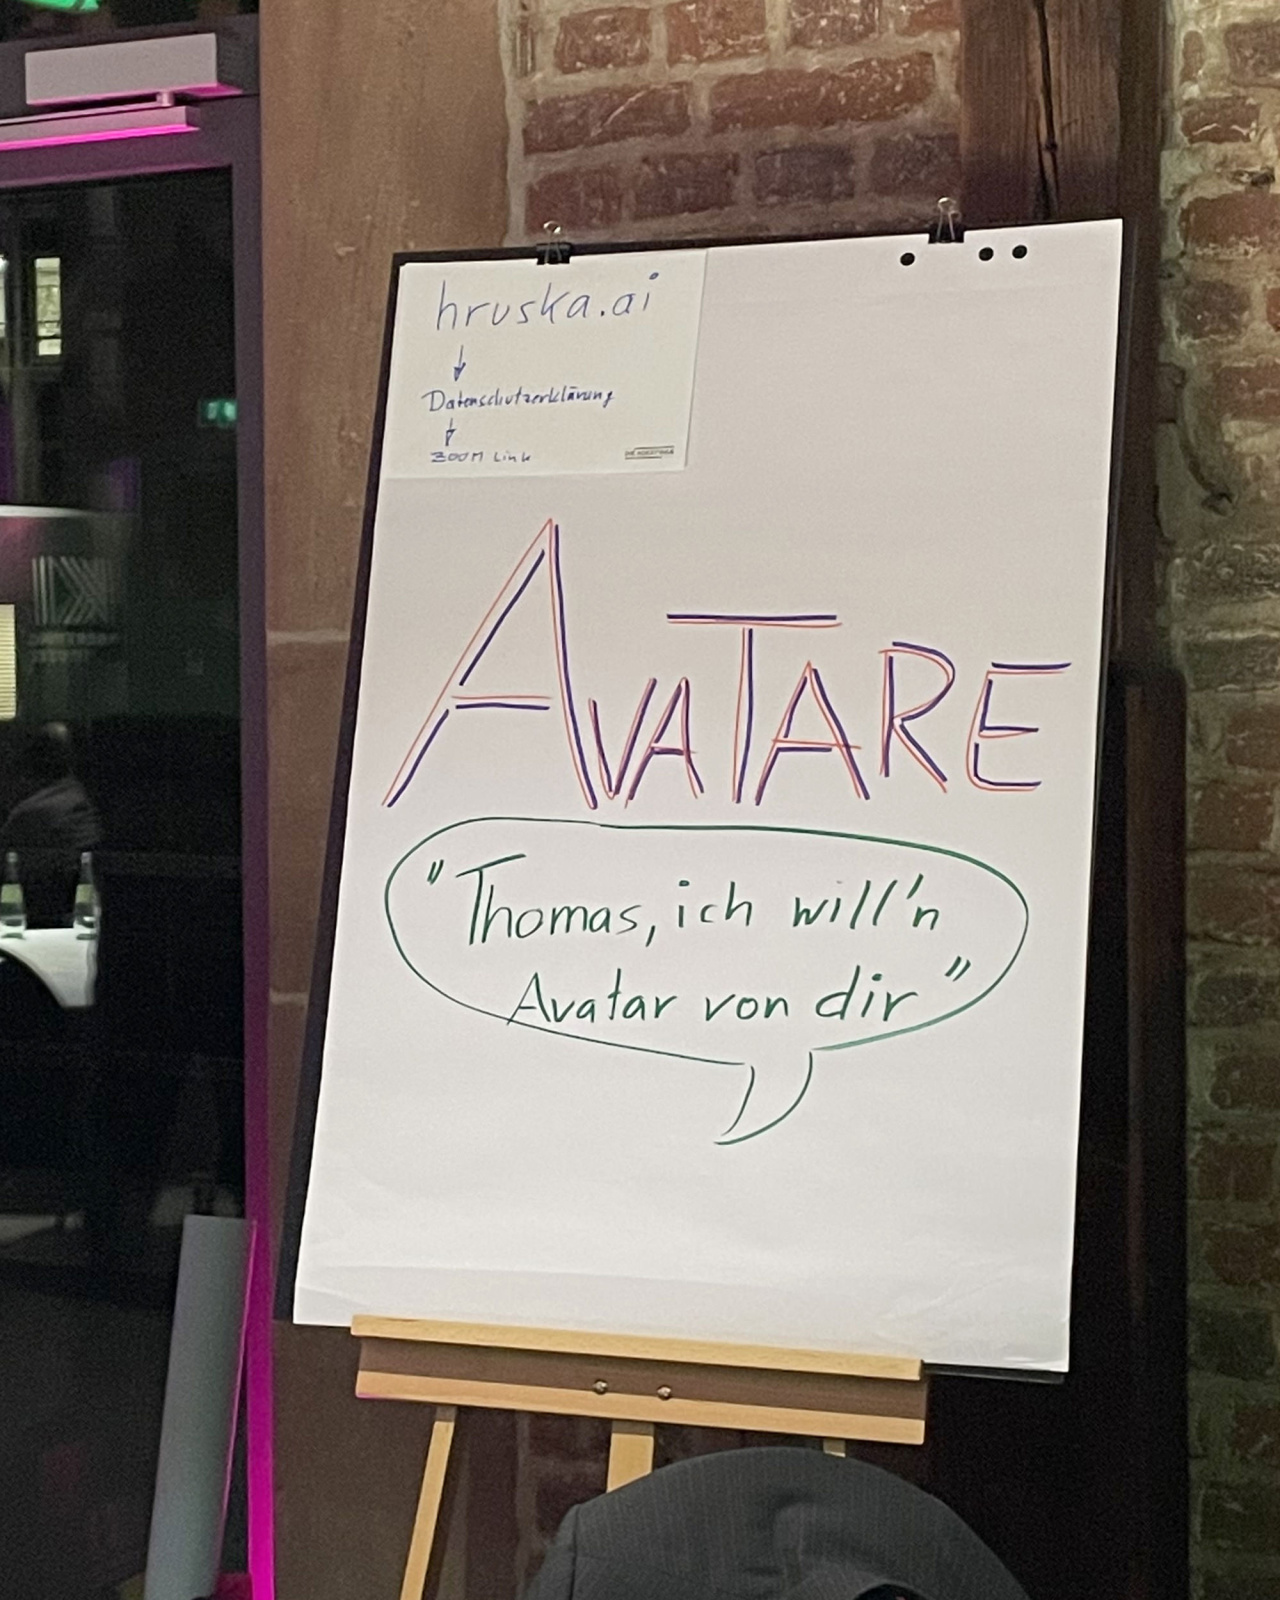 hruska.ai
Datenschutzerklärung
ZOOM Link
AVATARE
"Thomas, ich will'n
Avatar von dir"